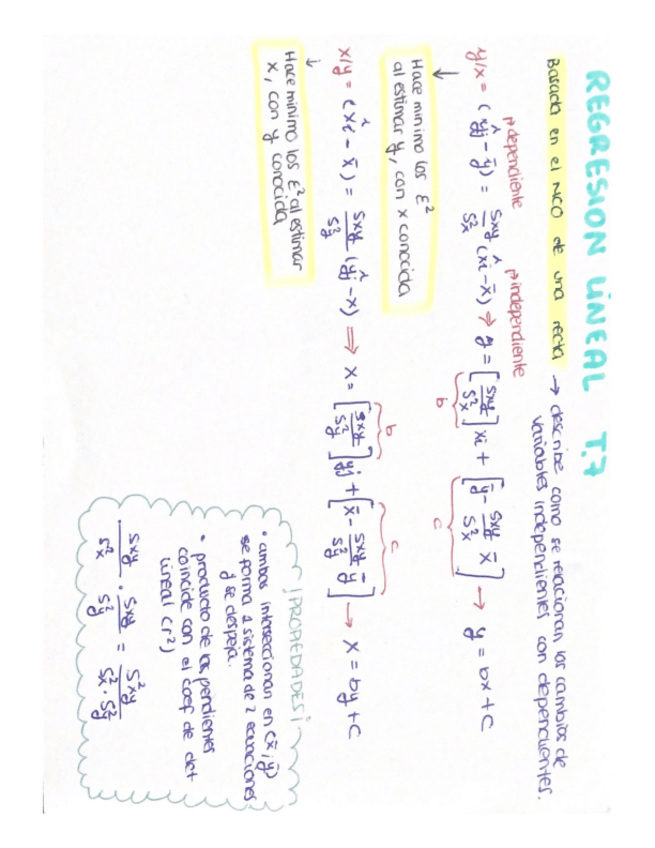 REGRESION LINEAL T.7
Basada en el MCO de una recta → describe como se relacionan los cambios de
variables independientes con dependientes.
dependiente independiente
y/x = (ŷj - ȳ) = Sxy/S²x (x̂i - x̄) → y = [Sxy/S²x] xi + [ȳ - Sxy/S²x x̄] → y = bx + c
b c
Hace minimo los E²
al estimar y, con x conocida
x/y = (x̂i - x̄) = Sxy/S²y (ŷj - x) ⇒ x = [Sxy/S²y] yj + [x̄ - Sxy/S²y ȳ] → x = by + c
b c
Hace minimo los E² al estimar
x, con y conocida
¡PROPIEDADES!
• ambas interseccionan en (x̄, ȳ)
se forma 1 sistema de 2 ecuaciones
y se despeja.
• producto de las pendientes
coincide con el coef de det
lineal (r²)
Sxy/S²x · Sxy/S²y = S²xy/S²x · S²y